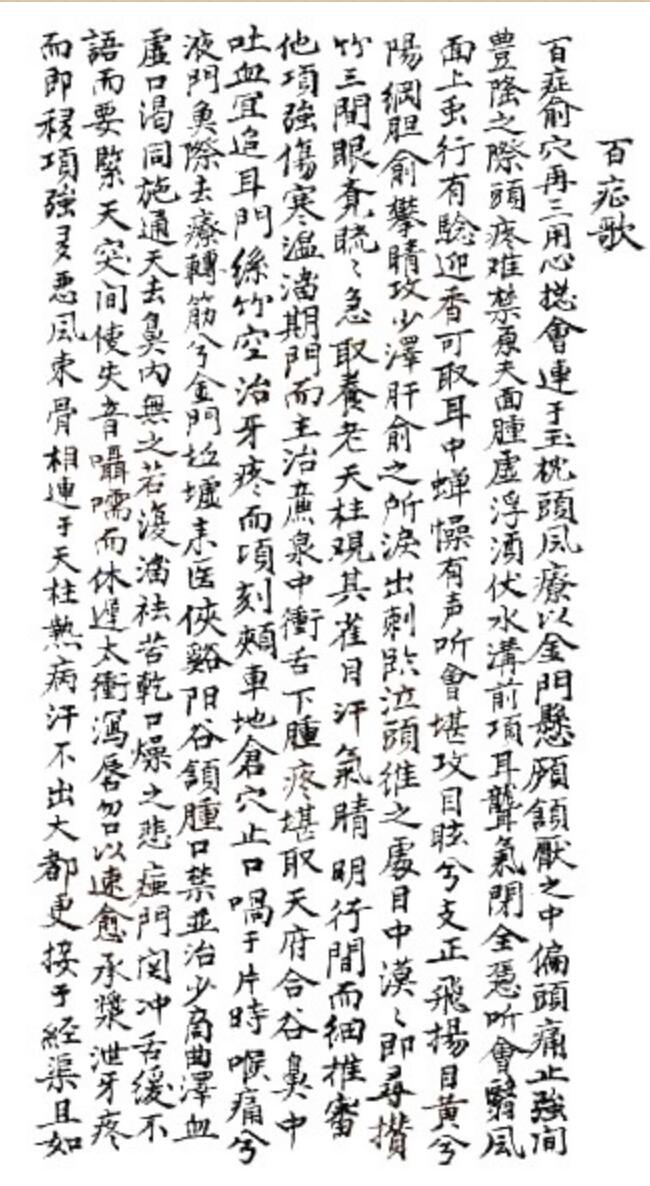 百症歌
百症俞穴再三用心揔會連于玉枕頭風療以金門懸顱頷厭之中偏頭痛止強间
豊隆之際頭疼难禁原夫面腫虛浮酒伏水溝前項耳聾氣閉全慿听會翳風
面上虫行有驗迎香可取耳中蝉懆有声听會堪攻目眩兮支正飛揚目黄兮
陽綱胆俞攀睛攻少澤肝俞之所淚出刺臨泣頭維之處目中漠〻即尋攅
竹三間眼𥆨𥆧〻急取養老天柱观其雀目汗氣睛明行間而細推審
他項強傷寒温㴰期門而主治廉泉中衝舌下腫疼堪取天府合谷鼻中
吐血宜追耳門絲竹空治牙疼而項刻頰車地倉穴止口喎于片時喉痛兮
液門魚際去療轉筋兮金門坵墟耒医俠谿阳谷頷腫口禁並治少商曲澤血
虛口渴同施通天去鼻内無之若復溜祛苦乾口燥之悲痖門関冲舌缓不
語而要緊天突间使失音囁嚅而休遅太衝瀉唇㖞以速愈承漿泄牙疼
而即移項強多悪風束骨相連于天柱熱病汗不出大都更接于経渠且如